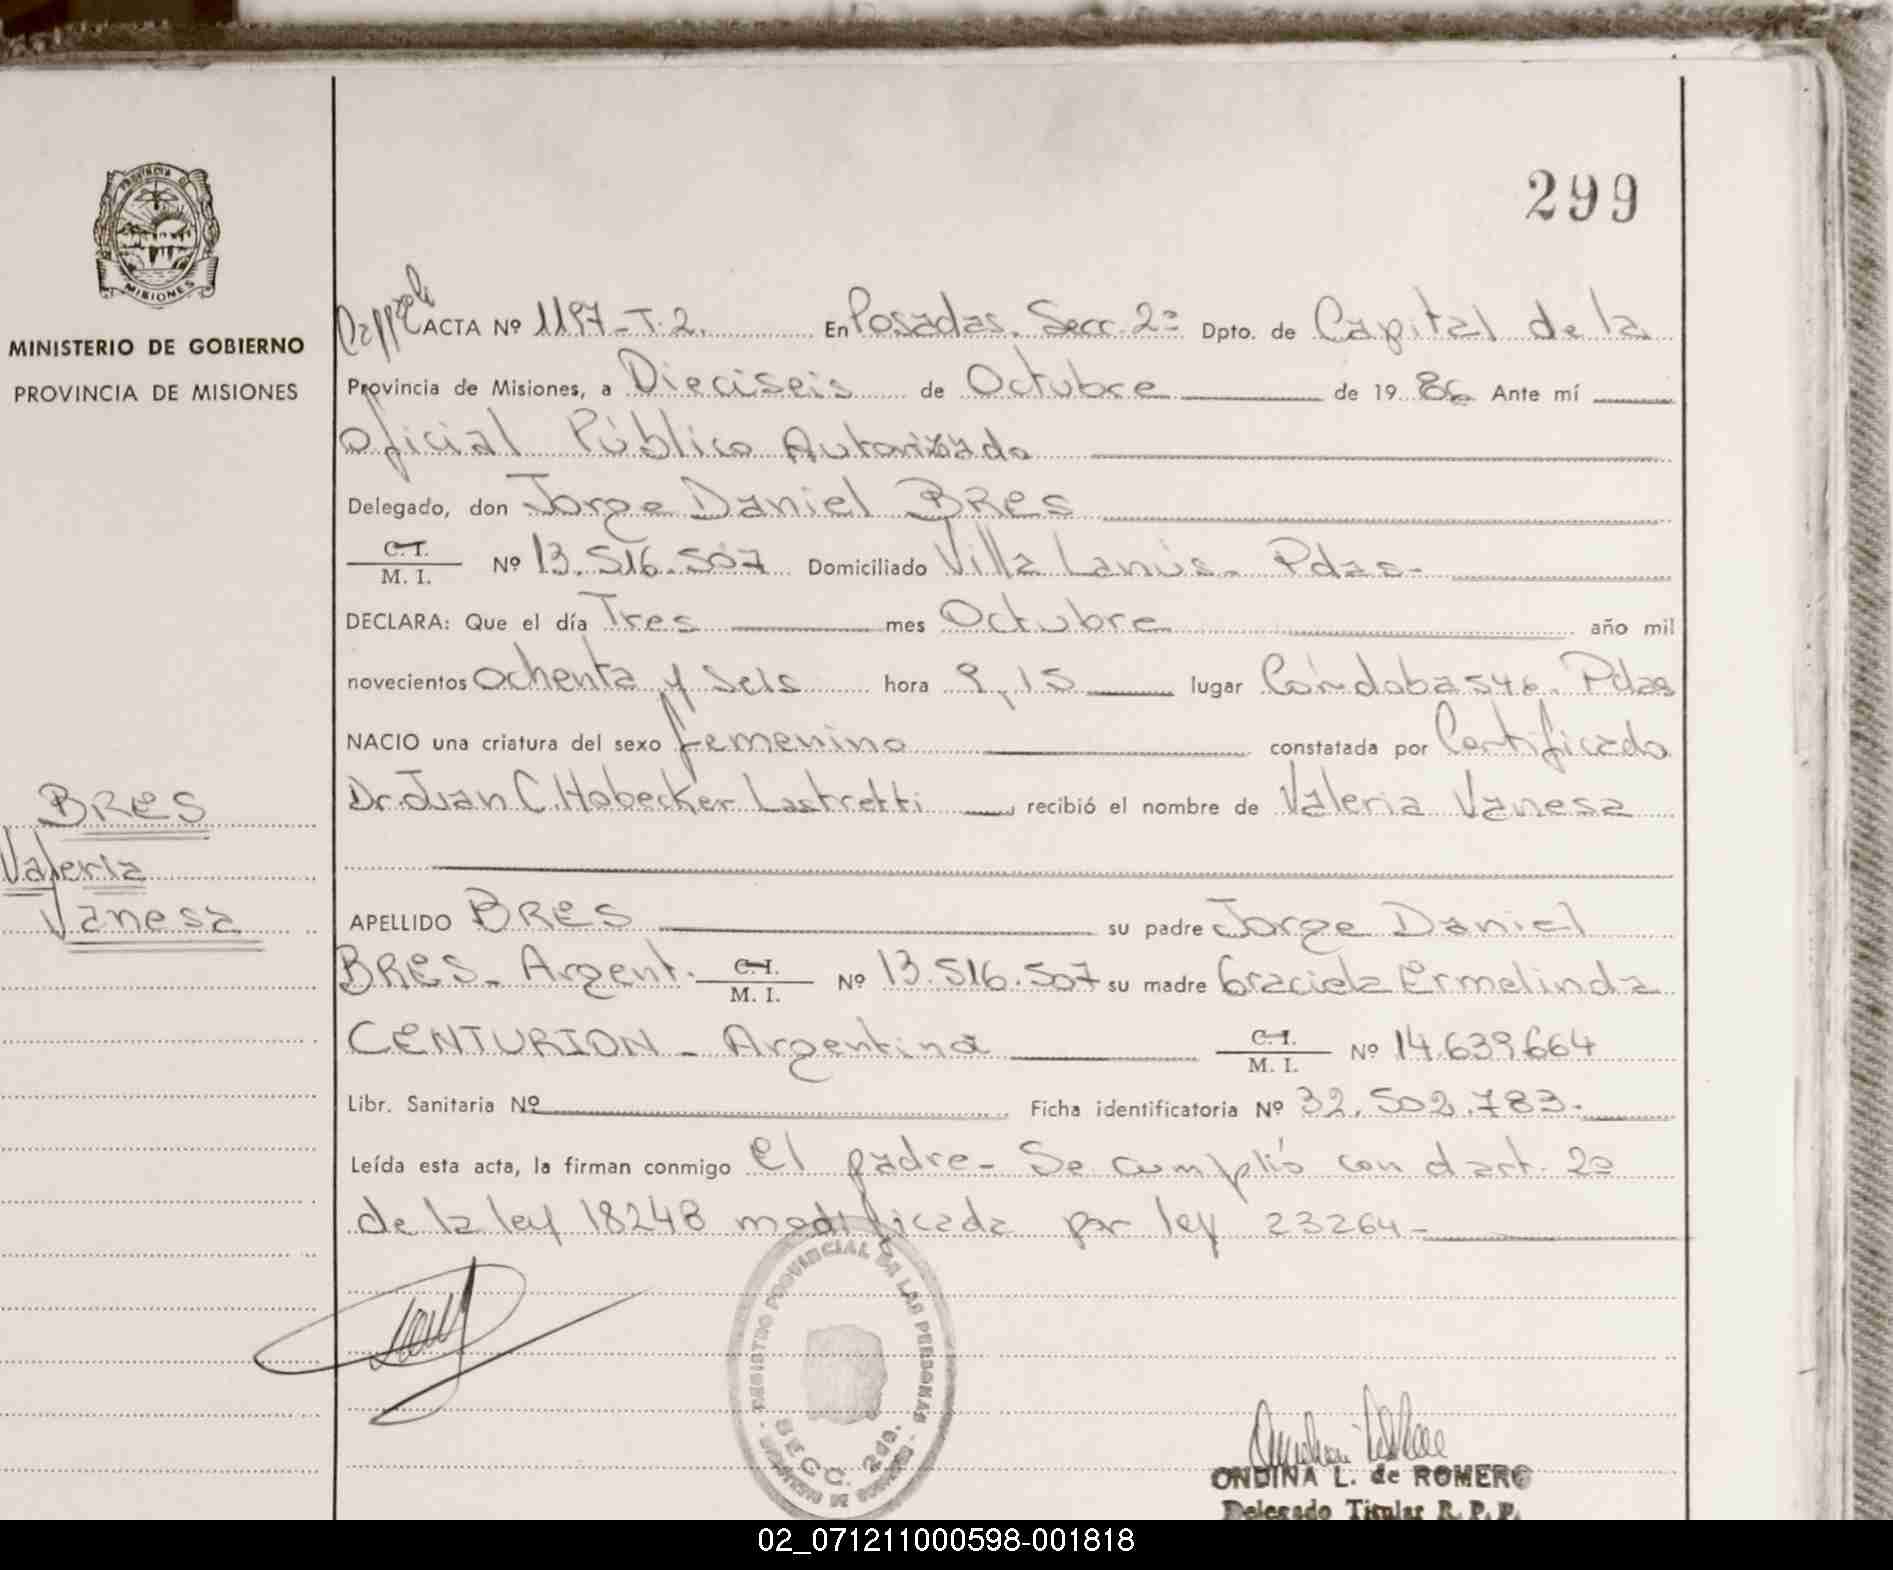 299
PROVINCIA DE
MISIONES
MINISTERIO DE GOBIERNO
PROVINCIA DE MISIONES
BRES
Valeria
Vanesa
ACTA Nº 1197-T.2. En Posadas. Secc. 2ª Dpto. de Capital de la
Provincia de Misiones, a Dieciseis de Octubre de 1986 Ante mí
Oficial Público Autorizado
Delegado, don Jorge Daniel BRES
C. I.
M. I. Nº 13.516.507 Domiciliado Villa Lanús- Pdas-
DECLARA: Que el día Tres mes Octubre año mil
novecientos ochenta y seis hora 9,15 lugar Córdoba 546. Pdas
NACIO una criatura del sexo femenino constatada por Certificado
Dr. Juan C. Hobecker Lastretti recibió el nombre de Valeria Vanesa
APELLIDO BRES su padre Jorge Daniel
BRES- Argent. C. I. M. I. Nº 13.516.507 su madre Graciela Ermelinda
CENTURION - Argentina C. I. M. I. Nº 14.639.664
Libr. Sanitaria Nº Ficha identificatoria Nº 32.502.783-
Leída esta acta, la firman conmigo el padre- Se cumplió con el art. 2º
de la ley 18248 modificada por ley 23264-
REGISTRO PROVINCIAL DE LAS PERSONAS
SECC. 2da.
ONDINA L. de ROMERO
Delegado Titular R. P. P.
02_071211000598-001818